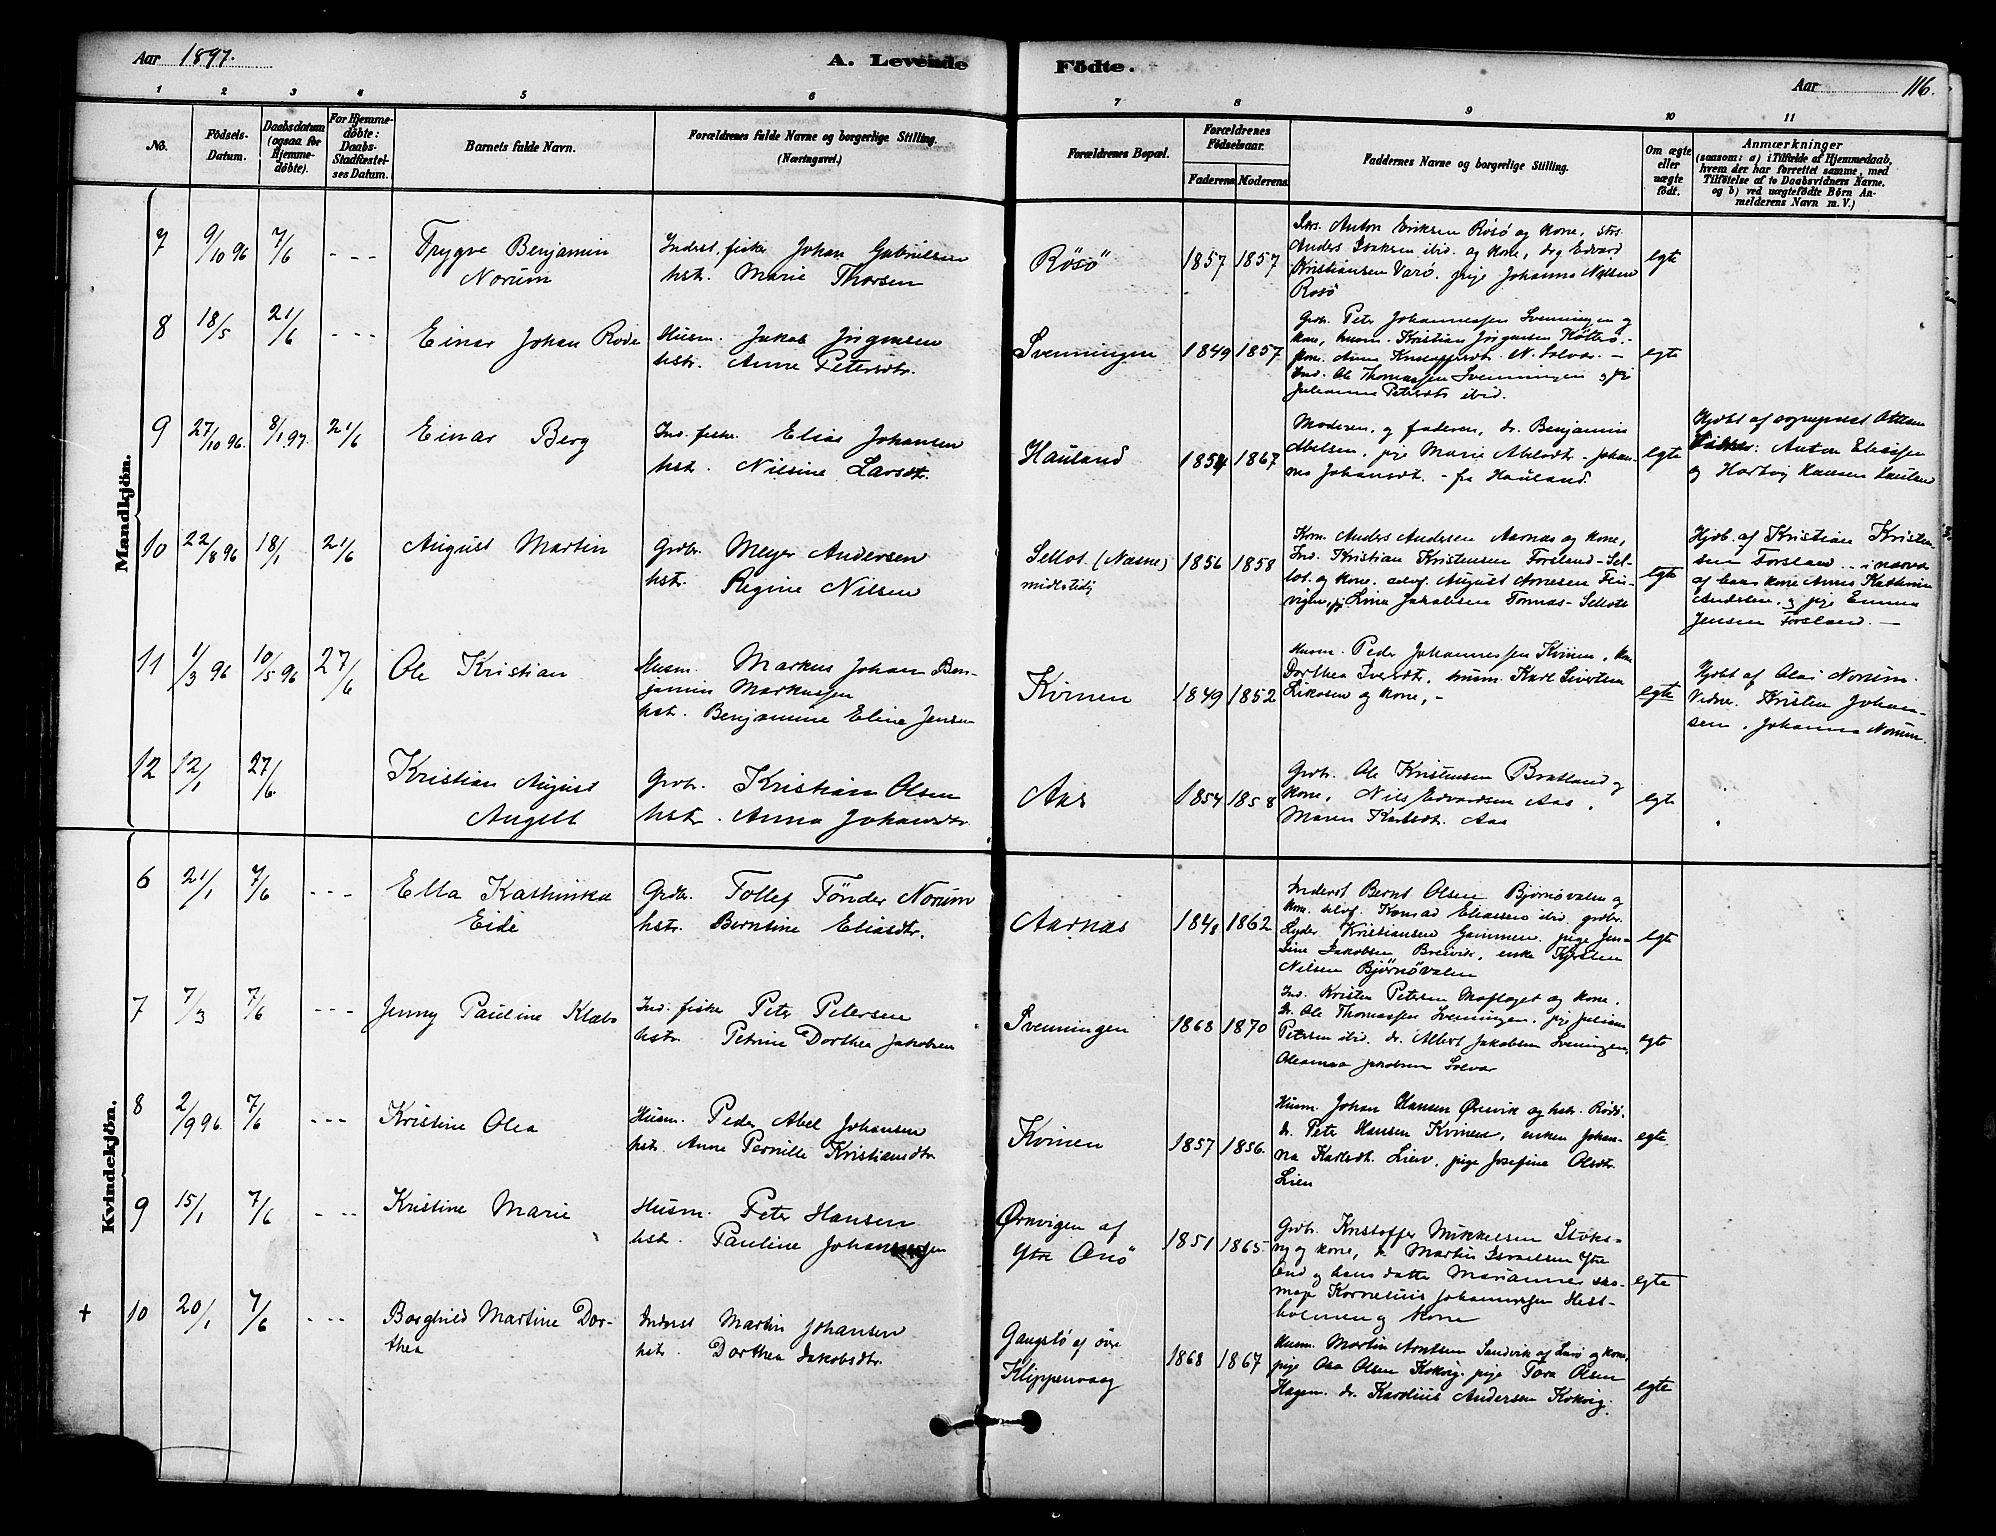 Aar 1897.
A. Levende Födte.
Aar 116.
1 2 3 4 5 6 7 8 9 10 11
No.
Födsels-Datum.
Daabsdatum (ogsaa for Hjemmedøbte).
For Hjemmedøbte: Daabs-Stadfæstelses Datum.
Barnets fulde Navn.
Forældrenes fulde Navne og borgerlige Stilling.
(Næringsvei.)
Forældrenes Bopæl.
Forældrenes Födselsaar.
Faderens Moderens
Faddernes Navne og borgerlige Stilling.
Om ægte eller uægte født.
Anmærkninger
(saasom: a) i Tilfælde af Hjemmedaab,
hvem der har forrettet samme, med
Tilföielse af to Daabsvidners Navne.
og b) ved uægtefödte Börn An-
melderens Navn m. V.)
Mandkjön.
7 9/10 96 7/6 - - - Trygve Benjamin
Norum
Inderst. fisker Johan Gabrielsen
hst. Marie Thorsen
Rösö 1857 1857
Anton Eriksen Rösö og kone,
Anders Isaksen ibid. og kone, drg Edvard
Kristiansen Varö. pige Johanna Nilsen
Rosö
egte
8 18/5 21/6 - - - Einar Johan Rode
Husm. Jakob Jörgensen
hstr. Anne Petersdtr.
Svenningen 1849 1857
Grdr. Peter Johannessen Svenningen og
kone, husm. Kristian Jörgensen
kone. Anne N. Solvær. -
Ind. Ole Thomassen Svenningen
Julianna Petersdtr ibid.
egte
9 27/10 96. 8/1 97. 21/6 Einar Berg
Ind. fisker. Elias Johansen
hst. Nilsine Larsdtr.
Hauland 1854 1867
Moderen, og faderen, dr. Benjamin
Abelsen, pige Marie Abelsdtr - Johan-
na Johansdt. - fr Hauland.
egte
Hjdbt af
Anton Eliassen
og Hartvig Hansen
10 22/8 96 18/1 21/6 August Martin
Grdbr. Meyer Andersen
hst. Regine Nilsen
Selbot. (Næsne)
midlertidig
1856 1858
Kom. Anders Andersen Aarnæs og kone,
Ind. Kristian Kristensen Forsland Sel-
bot. og kone. August Arnesen
vigen, Lina Jakobsen
egte
Hjdb. af Kristian Kristen-
sen Forsland
af hans kone Anne Kathrine
Andersen. og pige Emma
Jensen Forsland. -
11 1/3 96 10/5 96 27/6 Ole Kristian
Husm. Markus Johan Ben-
jamin Markussen
hst. Benjamine Eline Jensen
Kvinen 1849 1852
Husm. Peder Johannessen Kvinen,
Dorthea Iversdt, husm. Karl Sivertsen
og kone, -
egte
Hjdbt af Olai Norum.
Vidner. Kristen Johan-
sen. Johanna Norum.
12 12/1 27/6. Kristian August
Angelt
Grdbr. Kristian Olsen
hstr. Anna Johansdtr.
Aas 1854 1858
Grdbr. Ole Kristensen Bratland og
kone, Nils Edvardsen Aas,
Maren Karlsdt. Aas
egte
Kvindekjön.
6 21/1 7/6 - - - Ella Kathinka
Eide
Grdbr. Tollef Tönder Norum
hstr. Berntine Eliasdtr.
Aarnæs 1848 1862
Inderst Bernt Olsen Bjørnøvalen og
kon. Konrad Eliassen ibid. grdbr.
Peder Kristiansen Gaimmen. pige Jen-
sine Jakobsen Breivik, enke Kjersten
Nilsen Bjørnøvalen
egte
7 7/3 7/6 - - - Jenny Pauline Klæbo
Ind. fisker Peter Petersen
hstr. Petrine Dorthea Jakobsen
Svenningen 1868 1870
Ind. Kristen Petersen og kone.
Dr. Ole Thomassen Svenningen. pige Juliane
Petersen ibid. dr. Albert Jakobsen Svenningen,
Oleanna Jakobsen Solvær
egte
8 2/9 96 7/6 - - - Kristine Olea
Husm. Peder Abel Johansen
hstr. Anne Pernille Kristiansdtr
Kvinen 1857 1856.
Husm. Johan Hansen Ørevik og hstr. Rödö.
dr. Peter Hansen Kvinen, enken Johan-
na Karlsdt. Lien, pige Josefine Olsdtr
Lien
egte.
9 15/1 7/6 - - - Kristine Marie
Husm. Peter Hansen
hstr. Pauline Johannessen
Ørnvigen af
Ytre Onö
1851 1865
Grdbr. Kristoffer Mikkelsen Stoks-
og kone, dr. Martin Israelsen Ytre
Onö og hans datter Marianne,
Kornelius Johannessen Hest-
holmen og kone
egte
+ 10 20/1 7/6 - - - Borghild Martine Dor-
thea
Inderst Martin Johansen
hstr. Dorthea Jakobsdtr.
Gangstö af övre
Klippenvaag
1868 1867
Husm. Martin Arntsen Sandvik af Lurö og kone,
pige Osa Olsen Kokvig. pige Tora Olsen
Hagen. dr. Karolius Andersen Kokvig.
egte